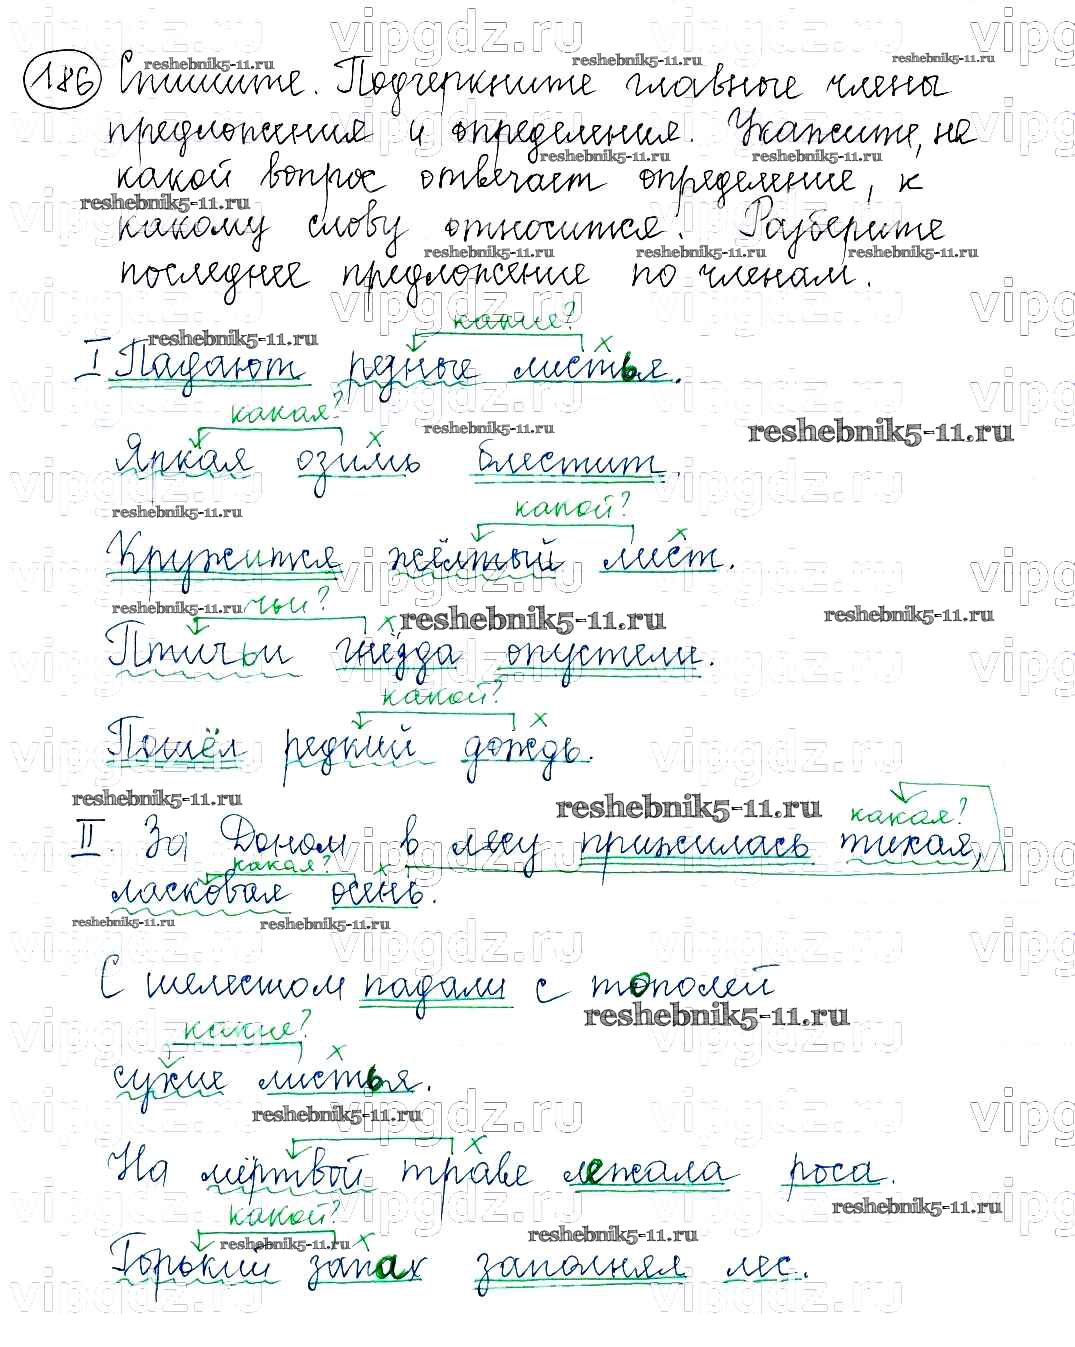 186 Спишите. Подчеркните главные члены
предложения и определения. Укажите, на
какой вопрос отвечает определение, к
какому слову относится. Разберите
последнее предложение по членам.
какие?
х
I Падают резные листья.
какая?
х
Яркая озимь блестит.
какой?
х
Кружится жёлтый лист.
чьи?
х
Птичьи гнёзда опустели.
какой?
х
Пошёл редкий дождь.
какая?
II. За Доном в лесу прижилась тихая,
какая?
х
ласковая осень.
С шелестом падали с тополей
какие?
х
сухие листья.
х
На мёртвой траве лежала роса.
какой?
х
Горький запах заполнял лес.
vipgdz.ru
reshebnik5-11.ru